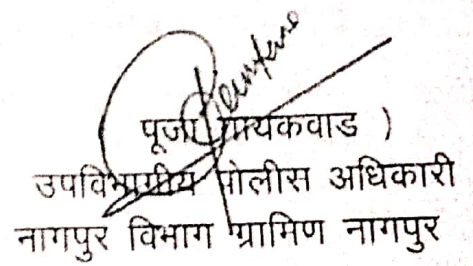 पूजा गायकवाड )
उपविभागीय पोलीस अधिकारी
नागपुर विभाग ग्रामिण नागपुर